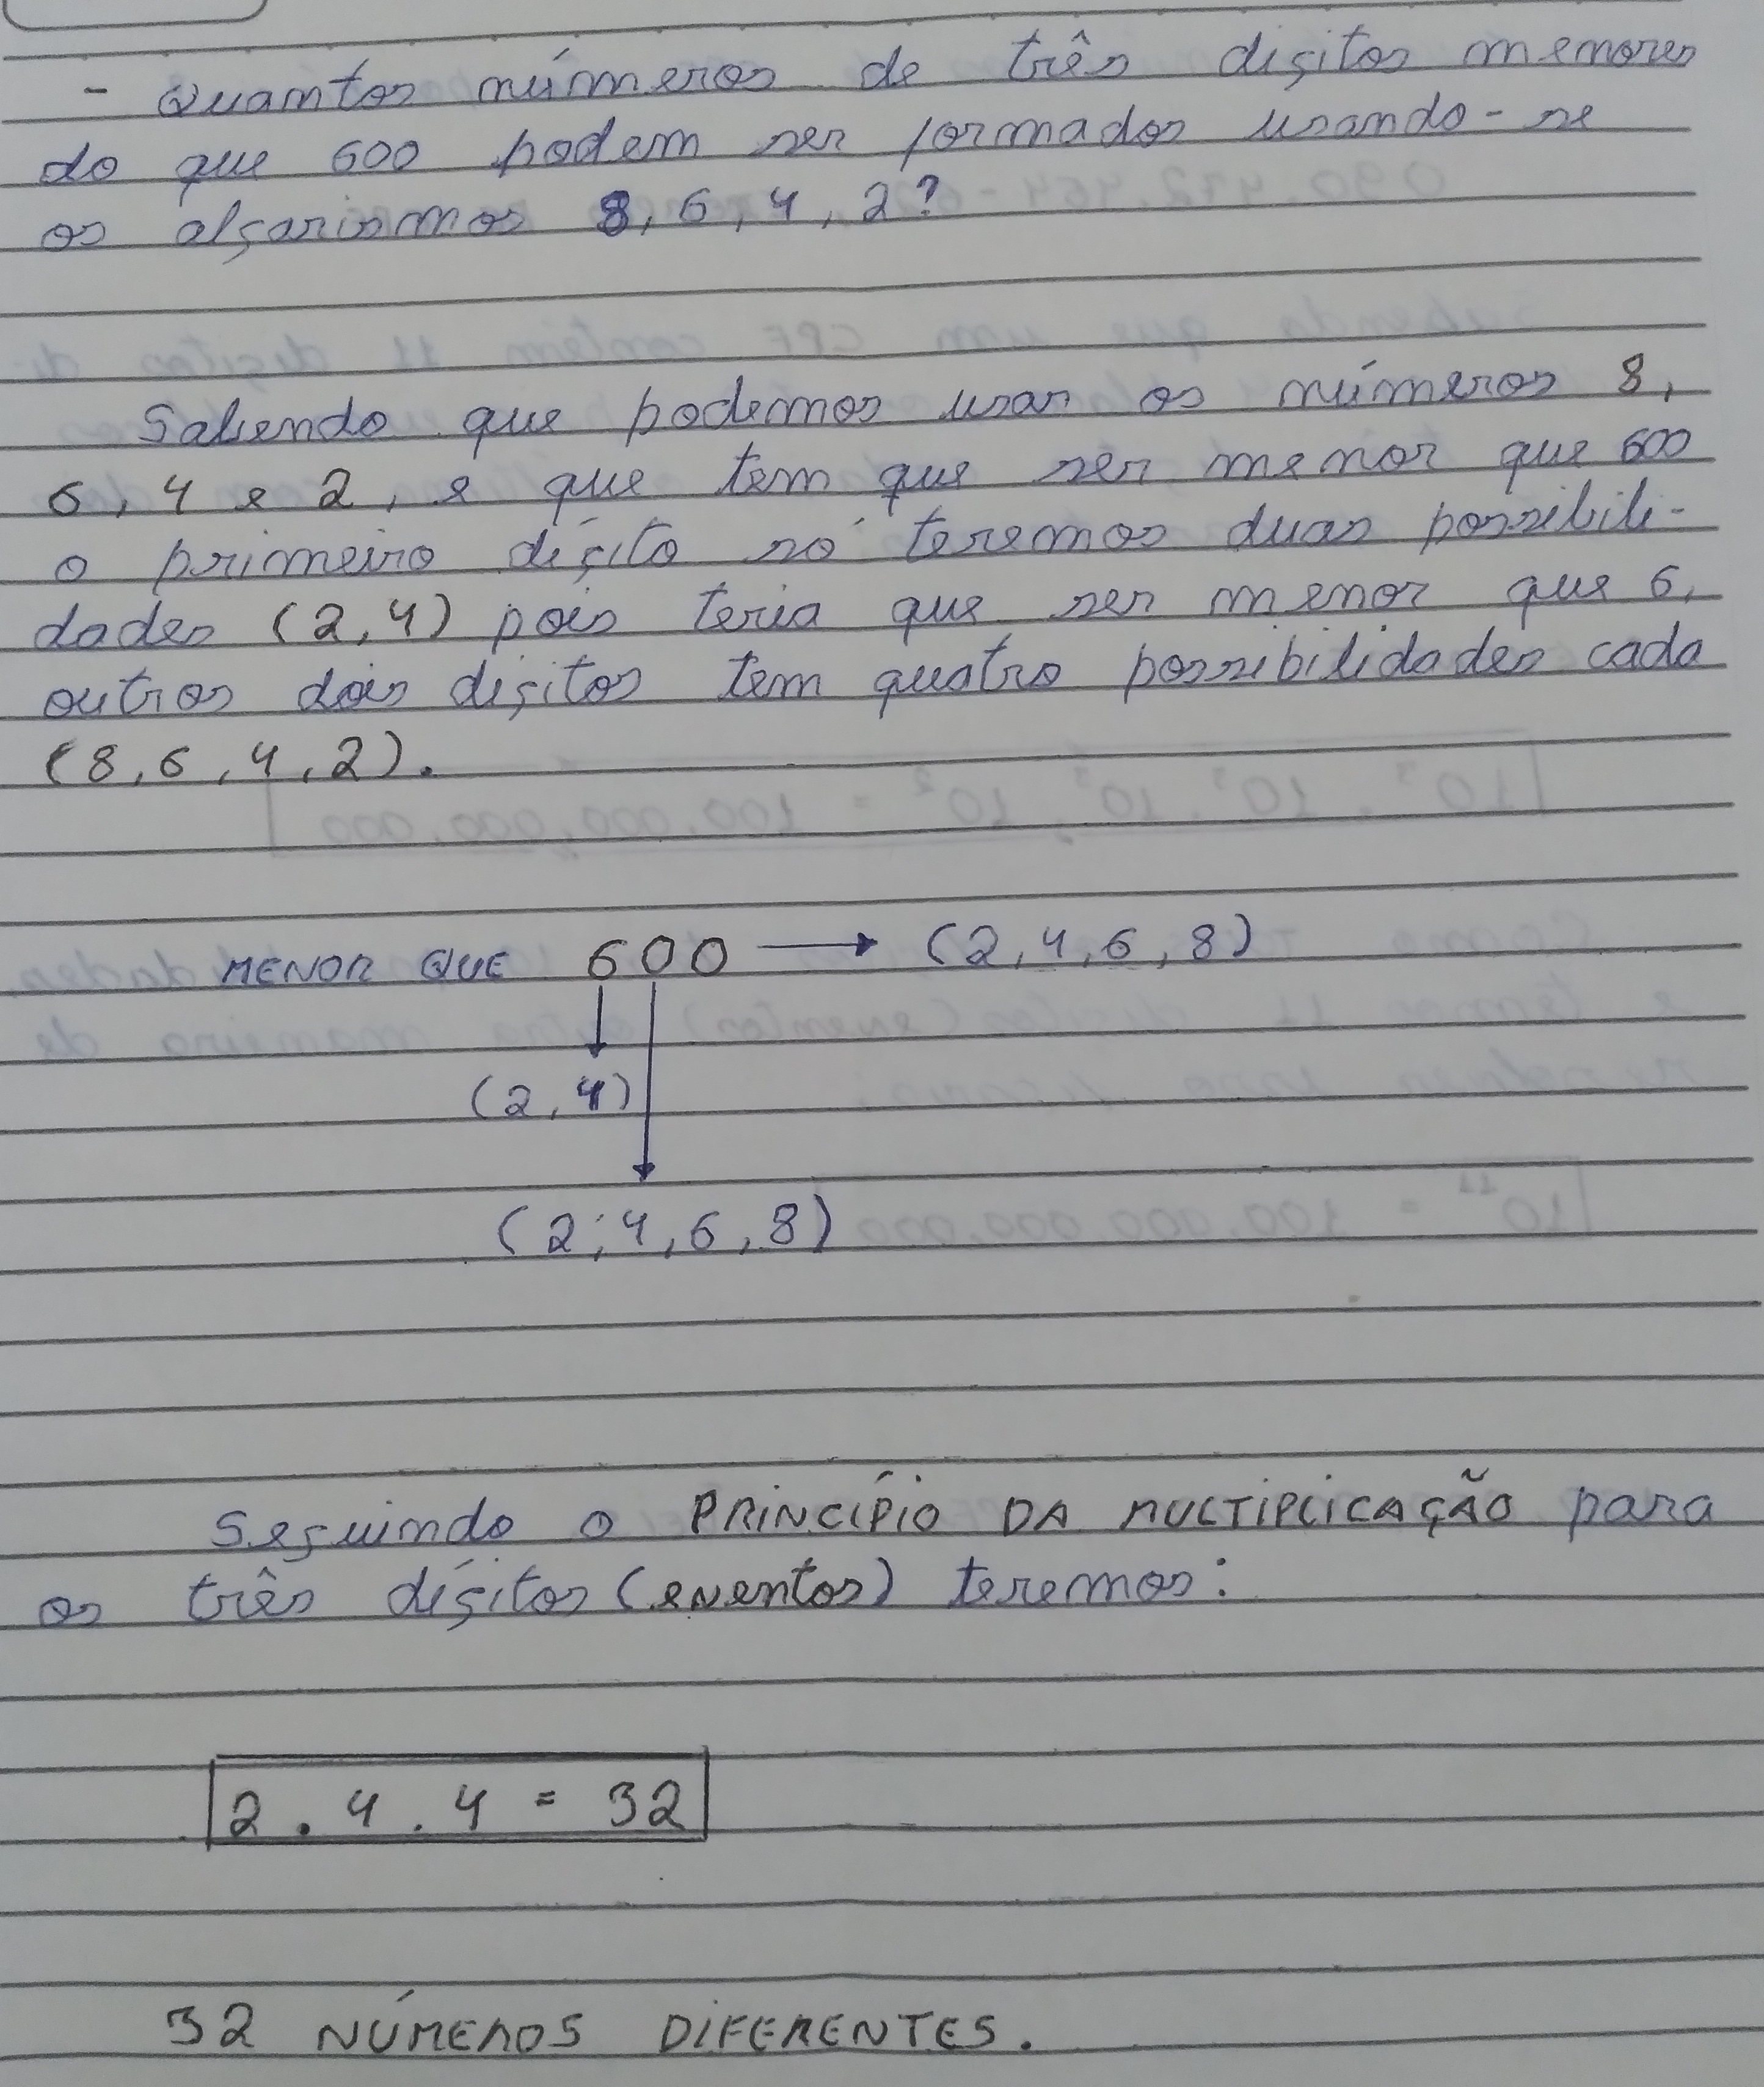 - Quantos números de três digitos menores
do que 600 podem ser formados usando-se
os algarismos 8, 6, 4, 2?
Sabendo que podemos usar os números 8,
6, 4 e 2, e que tem que ser menor que 600
o primeiro dígito só teremos duas possibili-
dades (2,4) pois teria que ser menor que 6,
outros dois digitos tem quatro possibilidades cada
(8,6,4,2).
MENOR QUE 600 → (2,4,6,8)
(2,4)
(2;4,6,8)
Seguindo o PRINCÍPIO DA MULTIPLICAÇÃO para
os três dígitos (eventos) teremos:
2 . 4 . 4 = 32
32 NÚMEROS DIFERENTES.